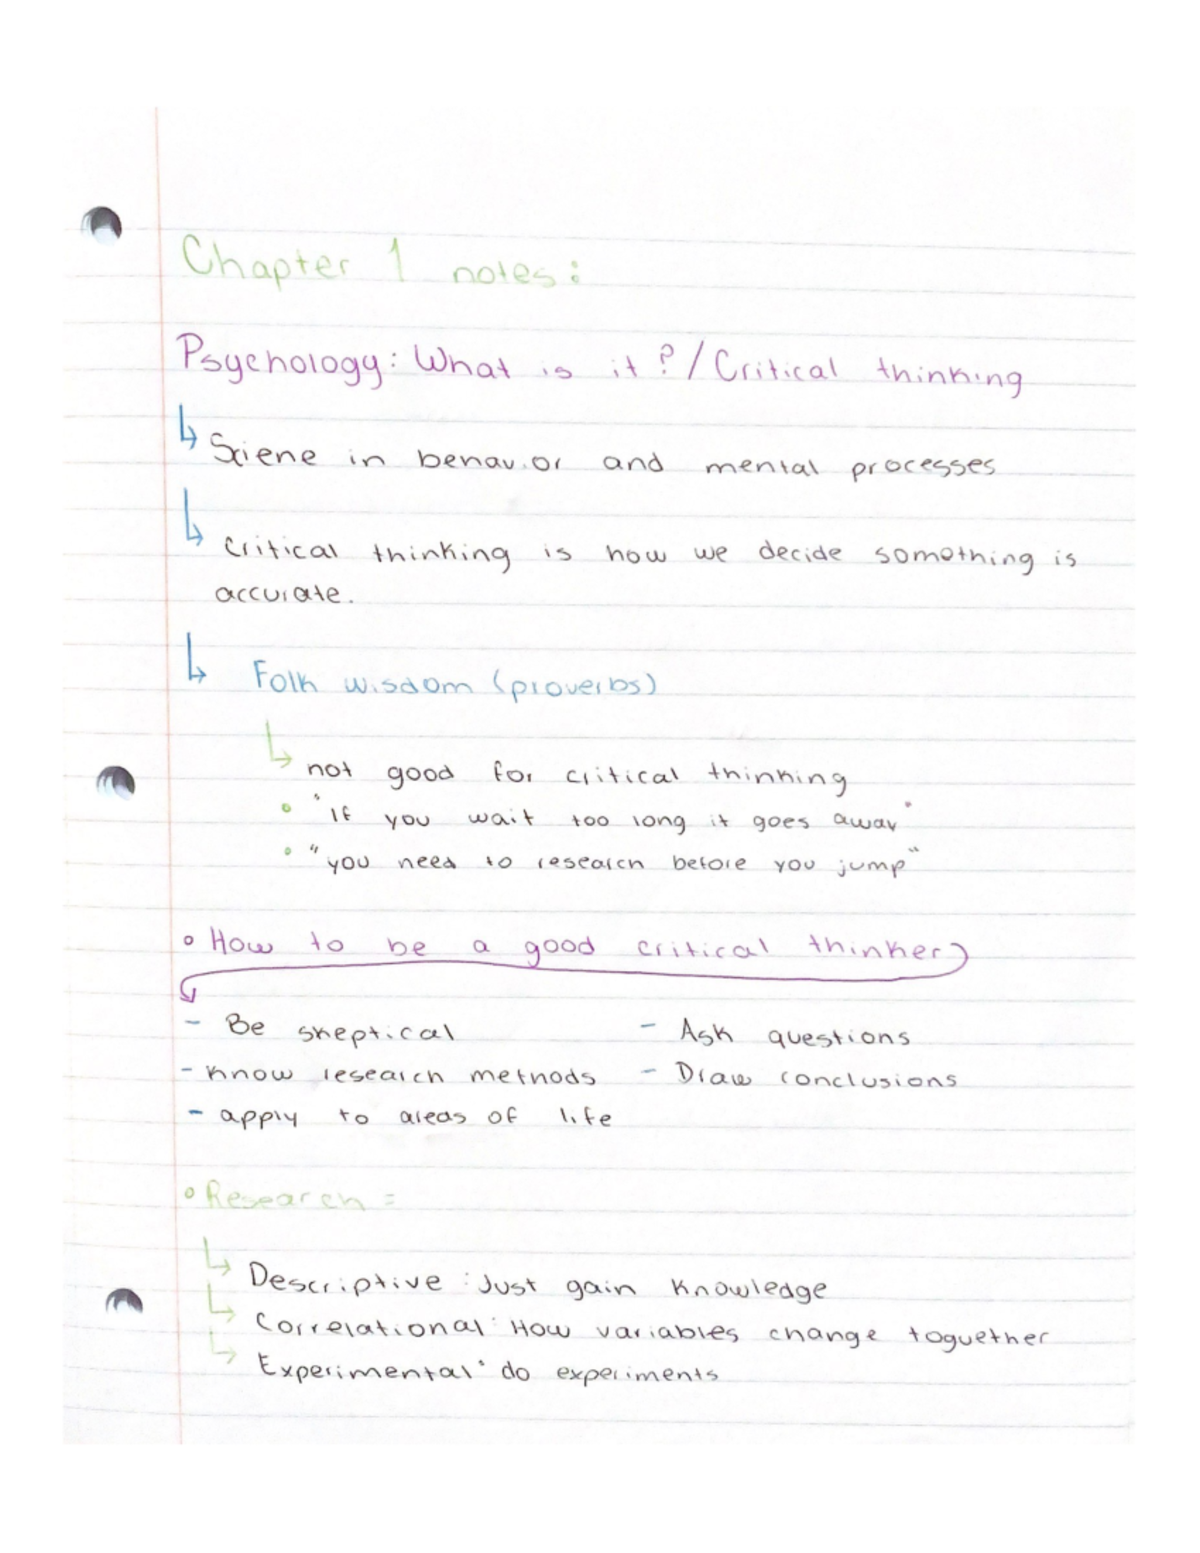 Chapter 1 notes:
Psychology: What is it? / Critical thinking
↳ Sciene in behavior and mental processes
↳ Critical thinking is how we decide something is
accurate.
↳ Folk wisdom (proverbs)
↳ not good for critical thinking
• "If you wait too long it goes away"
• "you need to research before you jump"
• How to be a good critical thinker
- Be skeptical - Ask questions
- Know research methods - Draw conclusions
- apply to areas of life
• Research =
↳ Descriptive: Just gain knowledge
↳ Correlational: How variables change toguether
↳ Experimental: do experiments